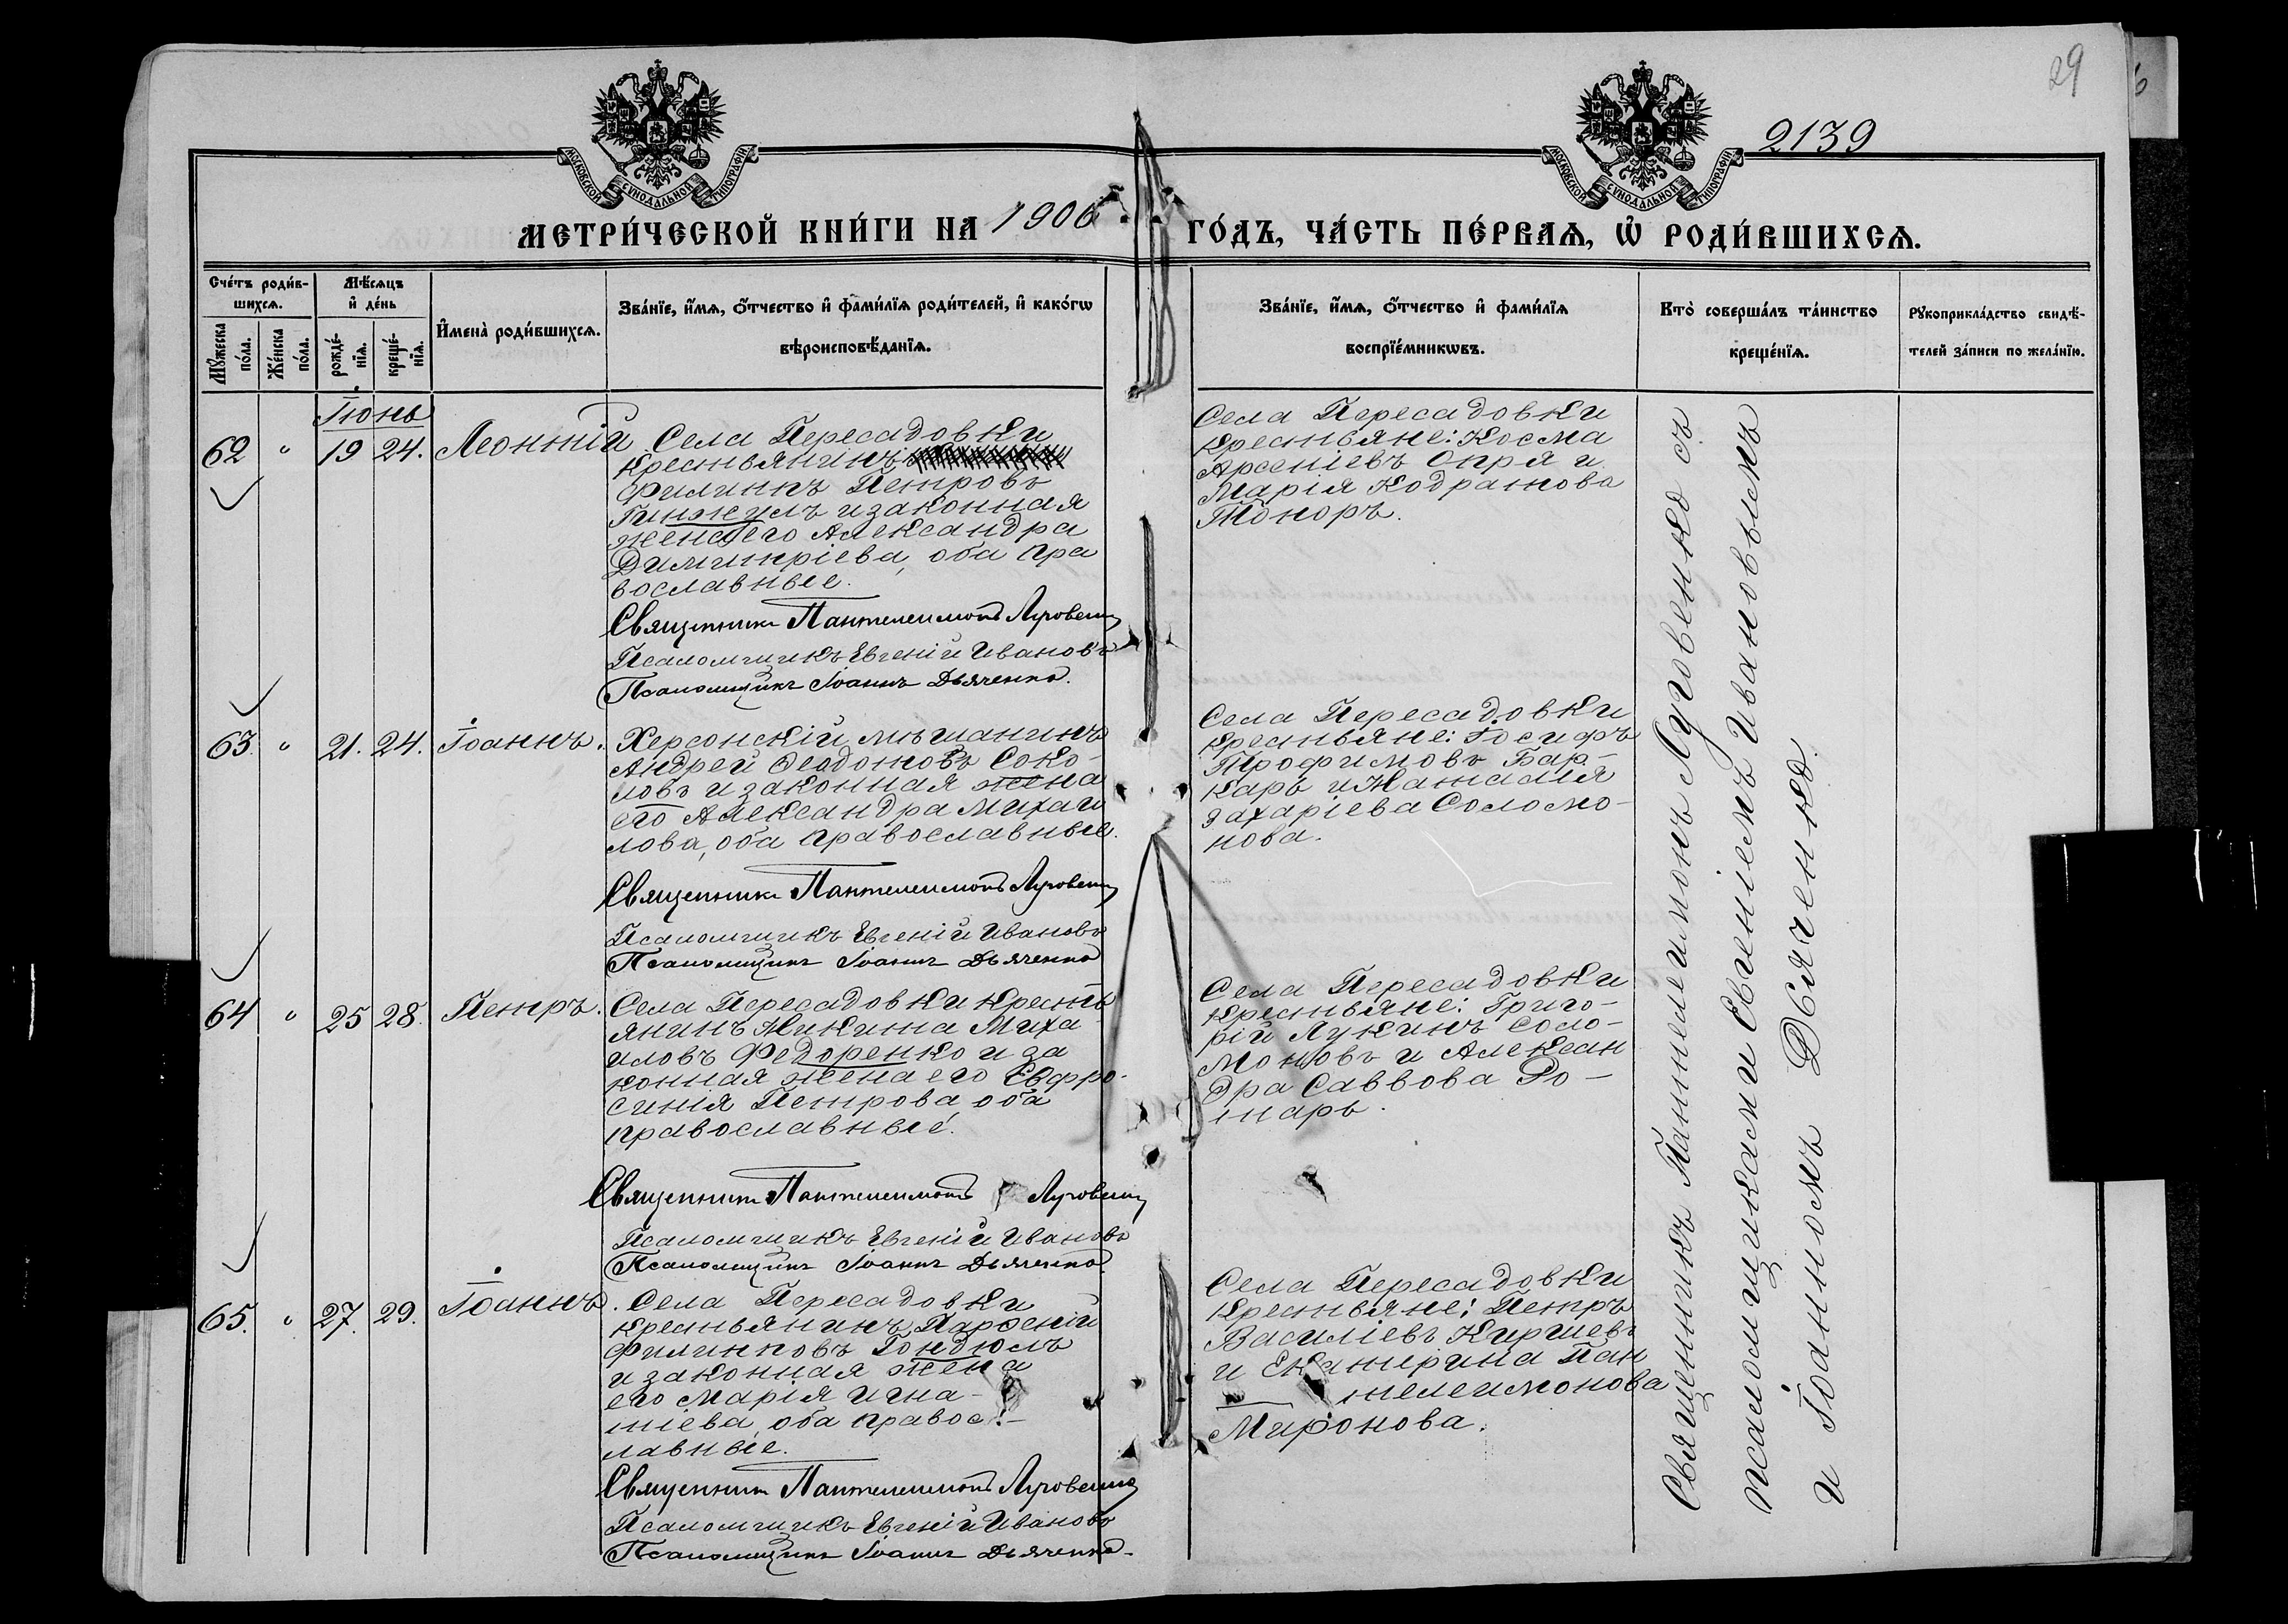 29
2139
МОСКОВСКОЙ СѴНОДАЛЬНОЙ ТИПОГРАФІИ
МОСКОВСКОЙ СѴНОДАЛЬНОЙ ТИПОГРАФІИ
МЕТРИ́ЧЕСКОЙ КНИ́ГИ НА 1906 ГО́ДЪ, ЧА́СТЬ ПЕ́РВАѦ, Ѡ҆ РОДИ́ВШИХСѦ.
Сче́тъ роди́в-
шихсѧ.
Мꙋ́жеска по́ла.
Же́нска по́ла.
Мѣ́сяцъ
и҆ де́нь
рожде́-
нїѧ.
креще́-
нїѧ.
И҆мена̀ роди́вшихсѧ.
Зва́нїе, и҆́мѧ, ѻ҆́тчество и҆ фами́лїѧ роди́телей, и҆ како́гѡ
вѣроисповѣ́данїѧ.
Зва́нїе, и҆́мѧ, ѻ҆́тчество и҆ фами́лїѧ
воспрїе́мникѡвъ.
Кто̀ соверша́лъ та́инство
креще́нїѧ.
Рꙋкоприкла́дство свидѣ́-
телей за́писи по жела́нїю.
Іюнь
62 " 19 24. Леонтій
Села Пересадовки
крестьянинъ
Филиппъ Петровъ
Гинжулъ и законная
жена его Александра
Димитріева, оба пра
вославные.
Священникъ Пантелеимонъ Луговенк
Псаломщикъ Евгеній Ивановъ
Псаломщикъ Іоаннъ Дьяченко.
Села Пересадовки
крестьяне: Косма
Арсеніевъ Опря и
Марія Кодратова
Топоръ.
63. " 21. 24. Іоаннъ.
Херсонскій мѣщанинъ
Андрей Ѳеодотовъ Соко-
ловъ и законная жена
его Александра Михаи
лова, оба православные.
Священникъ Пантелеимонъ Луговенк
Псаломщикъ Евгеній Ивановъ
Псаломщикъ Іоаннъ Дьяченко
Села Пересадовки
крестьяне: Іосифъ
Трофимовъ Бар-
карь и Наталія
Захаріева Соломо-
нова.
64 " 25 28. Петръ.
Села Пересадовки кресть
янинъ Никита Миха
иловъ Федоренко и за
конная жена его Евфро-
синія Петрова, оба
православные.
Священникъ Пантелеимонъ Луговенк
Псаломщикъ Евгеній Ивановъ
Псаломщикъ Іоаннъ Дьяченко.
Села Пересадовки
крестьяне: Григо-
рій Лукинъ Соло-
моновъ и Алексан
дра Саввова Ро-
тарь.
65. " 27. 29. Іоаннъ.
Села Пересадовки
крестьянинъ Парѳеній
Филипповъ Гондюлъ
и законная жена
его Марія Игна-
тіева, оба правос-
лавные.
Священникъ Пантелеимонъ Луговенко
Псаломщикъ Евгеній Ивановъ
Псаломщикъ Іоаннъ Дьяченко.
Села Пересадовки
крестьяне: Петръ
Василіевъ Киршевъ
и Екатерина Пан
телеимонова
Миронова.
Священникъ Пантелеимонъ Луговенко съ
псаломщиками Евгеніемъ Ивановымъ
и Іоанномъ Дьяченко.